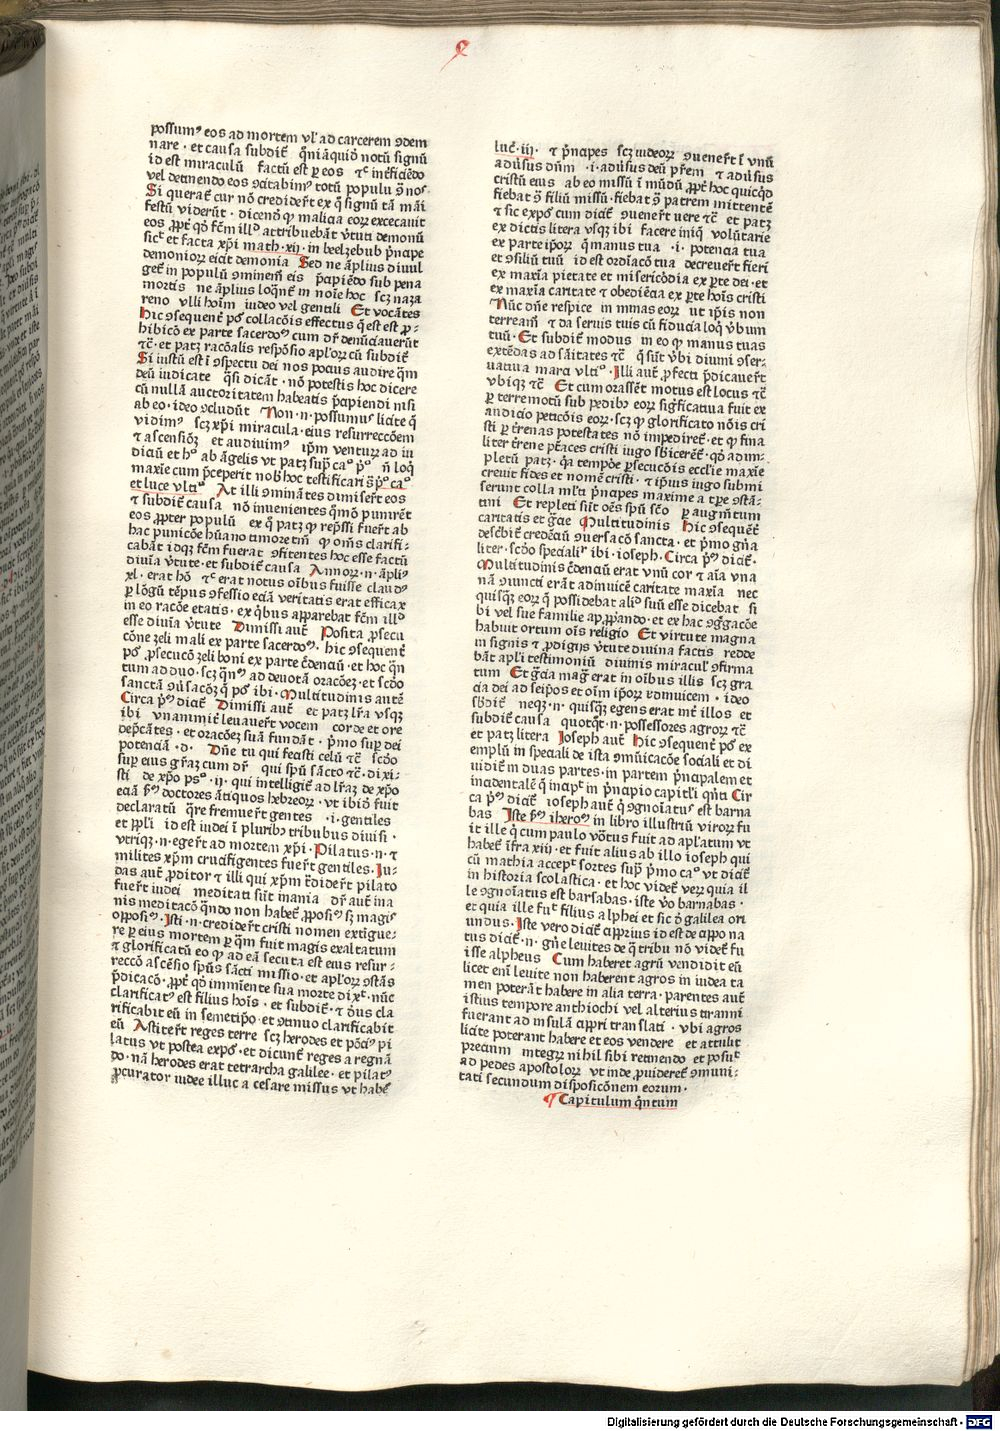 possumꝰ eos ad mortem vl' ad carcerem ꝯdem
nare · et causa subdit̄ q̄niā quidō notū signū
id est miraculū factū est ꝑ eos tc̄ inēficiēdo
vel detinendo eos ꝯcitabimꝰ totū populū ꝯ̄ nos
Si querat̄ cur nō crediderūt ex q̄ signū tā māi
festū viderūt · dicenō qꝫ malicia eoꝝ excecauit
eos ꝓpt̄ qd̄ fēm illō attribuebāt v̄tuti demonū
sic̄ et facta xp̄i math · xij · in beelzebub p̄ncipe
demonioꝝ eicit demonia Sed ne āplius diuul
get̄ in populū ꝯminem̄ eis p̄cipiēdo sub pena
mortis ne āplius loqn̄t in noīe hoc scꝫ naza
reno vlli hoīm iudeo vel gentili Et vocātes
Hic ꝯsequent̄ pō collacōis effectus q̄ est est ꝓ-
hibicō ex parte sacerdoꝝ cum dr̄ denūciauerūt
tc̄ · et patꝫ racōalis respōsio apl'oꝝ cū subdit̄
Si iustū est ī ꝯspectu dei nos pocius audire q̄m
deū iudicate q̄si dicāt · nō potestis hoc dicere
cū nullā auctoritatem habeatis p̄cipiendi nisi
ab eo · ideo ꝯcludūt Non · n · possumus licite q̄
vidimꝰ scꝫ xp̄i miracula · eius resurreccōem
⁊ ascensiōꝫ et audiuimꝰ ip̄m venturꝫ ad iu
diciū et hō ab āgelis vt patꝫ supͣ caᵒ pᵒ n̄ loq̄
maxīe cum p̄ceperit nob̄ hoc testificari s̄ pᵒ caᵒ
et luce vltīᵒ At illi ꝯminātes dimiserūt eos
⁊ subdit̄ causa nō inuenientes quōmō punirēt
eos ꝓpter populū ex q̄ patꝫ qꝫ rep̄ssi fuer̄t ab
hac punicōe hūano timore tm̄ qꝫ om̄s clarifi-
cabāt idꝫ fēm fuerat ꝯfitentes hoc esse factū
diuīa v̄tute · et subdit̄ causa Annoꝝ · n · āpliꝰ
xl · erat hō tc̄ erat notus oībus fuisse claudꝰ
ꝑ lōgū tēpus ꝯfessio eciā veritatis erat efficax
in eo racōe etatis · ex q̄bus apparebat fēm illō
esse diuīa v̄tute Dimissi aūt Posita ꝓsecu
cōne zeli mali ex parte sacerdoꝝ · hic ꝯsequent̄
pō ꝓsecucō zeli boni ex parte c̄dencīū · et hoc q̄n
tum ad duo · scꝫ q̄nꝰ ad deuotā oracōeꝫ · et scd̄o
sanctā ꝯūsacōꝫ q̄ pō ibi · Multitudinis autē
Circa pᵐ dicīt̄ Dimissi aūt et patꝫ lr̄a vsqꝫ
ibi vnanimit̄ leuauer̄t vocem corde et ore
dep̄cātes · et oracōeꝫ suā fundāt · p̄mo suꝑ dei
potenciā · d · Dn̄e tu qui fecisti celū tc̄ scd̄o
suꝑ eius gr̄aꝫ cum dr̄ qui spū sācto tc̄ · dixi-
sti de xp̄o psᵒ · ij · qui intelligit̄ ad lr̄aꝫ de xp̄o
eciā ꝑ doctores ātiquos hebreoꝝ · vt ibid̄ fuit
declaratū q̄re fremuer̄t gentes · i · gentiles
et ꝓpl'i id est iudei ī pluribꝰ tribubus diuisi ·
vtriqꝫ · n · eger̄t ad mortem xp̄i · Pilatus · n · ⁊
milites xp̄m crucifigentes fuer̄t gentiles · Ju-
das aūt ꝓditor ⁊ illi qui xp̄m t̄dider̄t pilato
fuer̄t iudei meditati sūt inania dr̄ aūt ina
nis meditacō q̄ndo non habet̄ ꝓposiꝰ sꝫ magiſ
opposiꝰ · Isti · n · crediderūt cristi nomen extigue-
re ꝑ eius mortem ꝑ q̄m fuit magis exaltatum
⁊ glorificatū eo qꝫ ad eā secuta est eius resur-
reccō ascēsio spūs sācti missio · et apl'oꝝ ꝯstās
p̄dicacō · ꝓpt̄ qd̄ imminente sua morte dixit · nūc
clarificatꝰ est filius hoīs · et subdit̄ · ⁊ dūs cla
rificabit eū in semetip̄o · et ꝯtinuo clarificabit
eū Astiter̄t reges terre scꝫ herodes et pōciꝰ pi
latus vt postea expōit̄ · et dicunt̄ reges a regnā
do · nā herodes erat tetrarcha galilee · et pilatꝰ
ꝓcurator iudee illuc a cesare missus vt habet̄
luc̄ · iij · ⁊ p̄ncipes scꝫ iudeoꝝ ꝯuener̄t ī vnū
adūsus dūm · i · adūsus deū pr̄em ⁊ adūsus
cristū eius ab eo missū ī mūdū ꝓpt̄ hoc quicqd̄
fiebat ꝯ̄ filiū missū · fiebat ꝯ̄ patrem mittentē
⁊ sic expōit cum dicīt̄ ꝯuener̄t uere tc̄ et patꝫ
ex dictis litera vsqꝫ ibi facere iniq̄ volūtarie
ex parte ip̄oꝝ q̄ manus tua · i · potencia tua
et ꝯsiliū tuū id est ordīacō tua decreuer̄t fieri
ex maxīa pietate et misericōdia ex ꝑte dei · et
ex maxīa caritate ⁊ obediēcia ex ꝑte hoīs cristi
Nūc dn̄e respice in minas eoꝝ ut ip̄is non
terream̄ ⁊ da seruis tuis cū fiducia loq̄ v̄bum
tuū · Et subdit̄ modus in eo qꝫ manus tuas
extēdas ad sāitates tc̄ q̄ sūt v̄bi diuini ꝯser-
uatiua marci vltīᵒ · Illi aūt ꝓfecti p̄dicauer̄t
vbiqꝫ tc̄ Et cum orassēt motus est locus tc̄
ꝑ terremotū sub pedibꝰ eoꝝ sigīficatiua fuit ex
audicio peticōis eoꝝ · scꝫ qꝫ glorificato nōis cri
sti ꝑ t̄renas potestates nō impediret̄ · et qꝫ fina
liter t̄rene ptāces cristi iugo sb̄icerēt̄ · qd̄ adim-
pletū patꝫ · q̄a tempōe ꝑsecucōis eccl'ie maxīe
creuit fides et nomē cristi · ⁊ ip̄ius iugo submi
serunt colla ml'ti p̄ncipes maxime a tp̄e ꝯstā-
tini Et repleti sūt oēs spū scō ꝑ augmētum
caritatis et gr̄ae Multitudinis Hic ꝯsequēt̄
describit̄ credēciū ꝯuersacō sancta · et p̄mo gn̄a
liter · scd̄o specialiꝰ ibi · ioseph · Circa pᵐ dicīt̄ ·
Multitudinis c̄dencīū erat vnū cor ⁊ aīa vna
nā ꝯiuncti erāt adinuicē caritate maxīa nec
quisqꝫ eoꝝ q̄ possidebat aliꝰ suū esse dicebat si
bi vel sue familie apꝓpriando · et ex hac ꝯg̃gacōe
habuit ortum oīs religio Et virtute magna
in signis ⁊ ꝓdigijs v̄tute diuina factis redde
bāt apl'i testimoniū diuinis miracul' ꝯfirma
tum Et gr̄cia mag̃ erat in oībus illis scꝫ gra
cia dei ad seipos et oīm ip̄oꝝ adinuicem · ideo
sb̄dit̄ neqꝫ · n · quisqꝫ egens erat int̄ illos et
subdit̄ causa quotqt̄ · n · possessores agroꝝ tc̄
et patꝫ litera Joseph aūt Hic ꝯsequent̄ pō ex
emplū in speciali de ista ꝯmūicacōe sociali et di
uidit̄ in duas partes · in partem p̄ncipalem et
incidentalē q̄ incipit̄ in p̄ncipio capitl'i qn̄ti Cir
ca pᵐ dicīt̄ ioseph aūt q̄ ꝯgnoīatus est barna
bas Iste ꝑ ihero in libro illustriū viroꝝ fu
it ille q̄ cum paulo vōtus fuit ad apl'atum vt
habet̄ īfra xiij · et fuit alius ab illo ioseph qui
cū mathia accepit sortes supͣ p̄mo caᵒ vt dicīt̄
in historia scolastica · et hoc videt̄ verꝫ quia il
le ꝯgnoīatus est barsabas · iste v̄o barnabas ·
et quia ille fuit filius alphei et sic d̄ galilea ori
undus · Iste vero dicīt̄ cyprius id est de cypro na
tus dicīt̄ · n · gn̄e leuites de q̄ tribu nō videt̄ fu
isse alpheus Cum haberet agrū vendidit eū
licet enī leuite non haberent agros in iudea ta
men poterāt habere in alia terra · parentes aūt
istius tempore anthiochi vel alterius tiranni
fuerant ad insulā cypri translati · vbi agros
licite poterant habere et eos vendere et attulit
precium integrꝫ nihil sibi retinendo et posuit
ad pedes apostoloꝝ vt inde ꝓuideret̄ ꝯmuni-
tati secundum disposicōnem eorum ·
¶ Capitulum qn̄tum
Digitalisierung gefördert durch die Deutsche Forschungsgemeinschaft - DFG